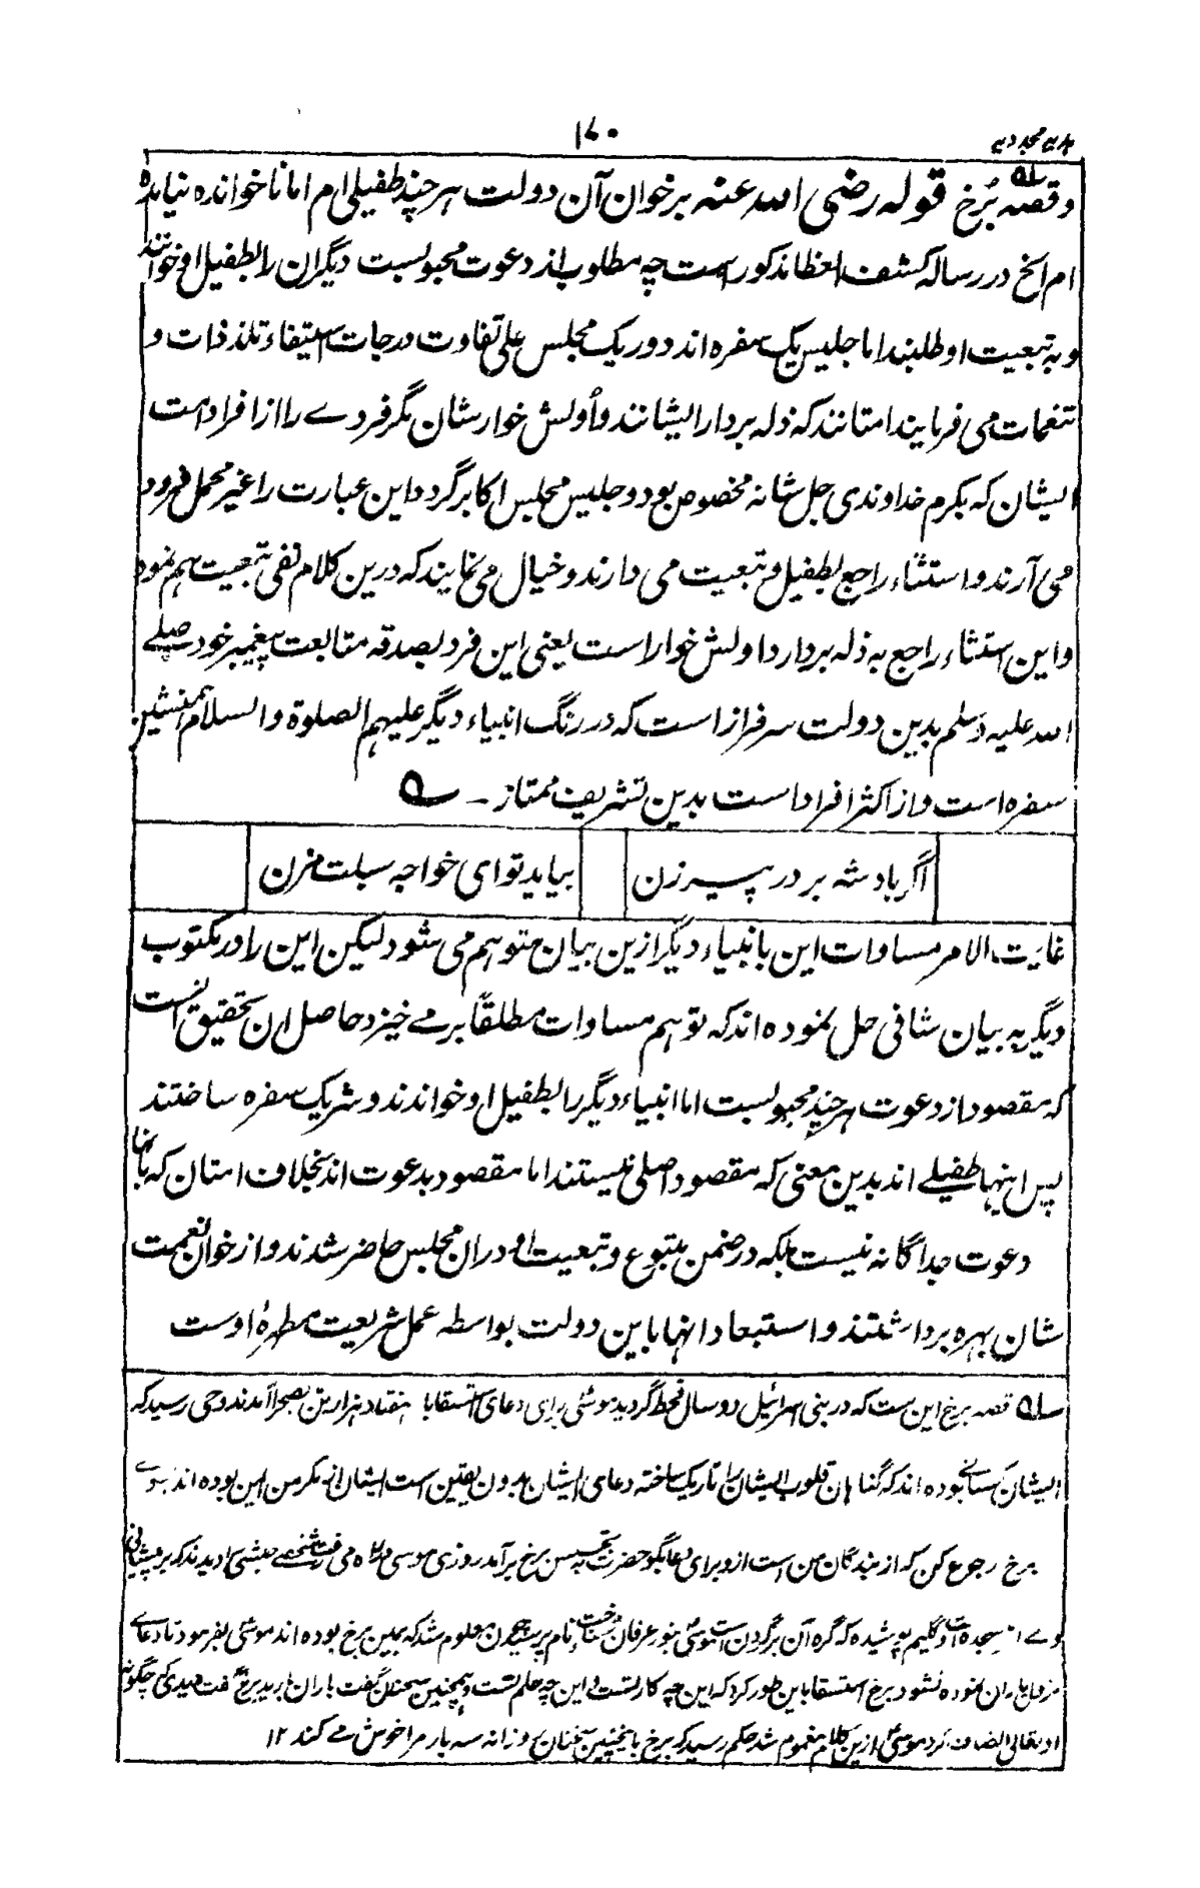 ہدیہ مجددیہ
۱۷۰
و قصہ بُرخ قولہ رضی اللہ عنہ برخوان آن دولت ہرچند طفیلی ام اما ناخواندہ نیامدہ
ام الخ در رسالہ کشف الغطا مذکور است چہ مطلوب از دعوت محبوبست دیگران را بطفیل او خوانند
و بہ تبعیت او طلبند اما جلیس یک سفرہ اند و در یک مجلس علی تفاوت درجات استیفاء تلذذات و
تنعمات می فرمایند امتانند کہ ذلہ بردار ایشانند و اُولش خوار شان مگر فردے را از افراد امت
ایشان کہ بکرم خداوندی جل شانہ مخصوص بود و جلیس مجلس اکابر گردد این عبارت را غیر محمل فرود
می آرند و استثناء راجع بطفیل و تبعیت می دارند و خیال می نمایند کہ درین کلام نفی تبعیت ہم نمود
و این استثناء راجع بہ ذلہ بردار و اولش خوار است یعنی این فرد بصدقہ متابعت پیغمبر خود صلے
اللہ علیہ وسلم بدین دولت سرفراز است کہ در رنگ انبیاء دیگر علیہم الصلوۃ والسلام ہمنشین
سفرہ است و از اکثر افراد امت بدین تشریف ممتاز ۔ ے
اگر بادشہ بر در پیر زن بیاید تو ای خواجہ سبلت مزن
غایت الامر مساوات این با نبیاء دیگر ازین بیان متوہم می شود لیکن این را در مکتوب
دیگر بہ بیان شافی حل نمودہ اند کہ توہم مساوات مطلقاً برمے خیزد حاصل ان تحقیق انست
کہ مقصود از دعوت ہرچند محبوبست اما انبیاء دیگر را بطفیل او خواندند و شریک سفرہ ساختند
پس اینہا طفیلے اند بدین معنی کہ مقصود اصلی نیستند اما مقصود بدعوت اند بخلاف امتان کہ بانہا
دعوت جداگانہ نیست بلکہ در ضمن متبوع و تبعیت او دران مجلس حاضر شدند و از خوان نعمت
شان بہرہ برداشتند و استبعاد انہا باین دولت بواسطہ عمل شریعت مطہرۂ اوست
قصہ برخ این ست کہ در بنی اسرائیل دو سال قحط گردید موسیٰ برای دعای استسقا با ہفتاد ہزار تن بصحرا آمدند وحی رسید کہ
ایشان کسانے بودہ اند کہ گناہان قلوب ایشان را تاریک ساختہ دعای ایشان بدون یقین است ایشان از مکر من امین بودہ اند بسوے
برخ رجوع کن کہ از بندگان من است ازو برای دعا بگو حضرت بتجسس برخ برآمد روزی موسیٰ در راہ می رفت شخصے حبشی را دیدند کہ بر پیشانی
وے از سجدہ است و گلیم پوشیدہ کہ گرہ آن بر گردن است موسیٰ بنور عرفان شناخت و نام پرسیدن معلوم شد کہ ہمین برخ بودہ اند موسیٰ بفرمود تا دعاے
نزول باران نمودہ شود برخ استسقا باین طور کرد کہ این چہ کار تست و این چہ حلم تست و ہمچنین سخنان گفت باران بارید برخ گفت دیدی کہ چگونہ
او تعالی انصاف کرد موسیٰ ازین کلام مغموم شد حکم رسید کہ برخ باینچنین سخنان روزانہ سہ بار مرا خوش مے کند ۱۲